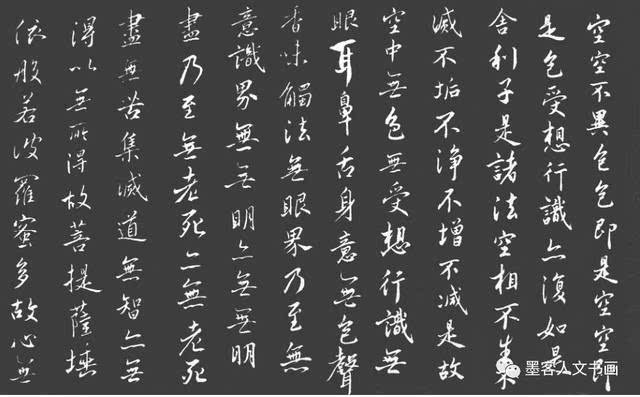 空空不異色色即是空空即
是色受想行識亦復如是
舍利子是諸法空相不生不
滅不垢不淨不增不減是故
空中無色無受想行識無
眼耳鼻舌身意無色聲
香味觸法無眼界乃至無
意識界無無明亦無無明
盡乃至無老死亦無老死
盡無苦集滅道無智亦無
得以無所得故菩提薩埵
依般若波羅蜜多故心無
墨客人文书画